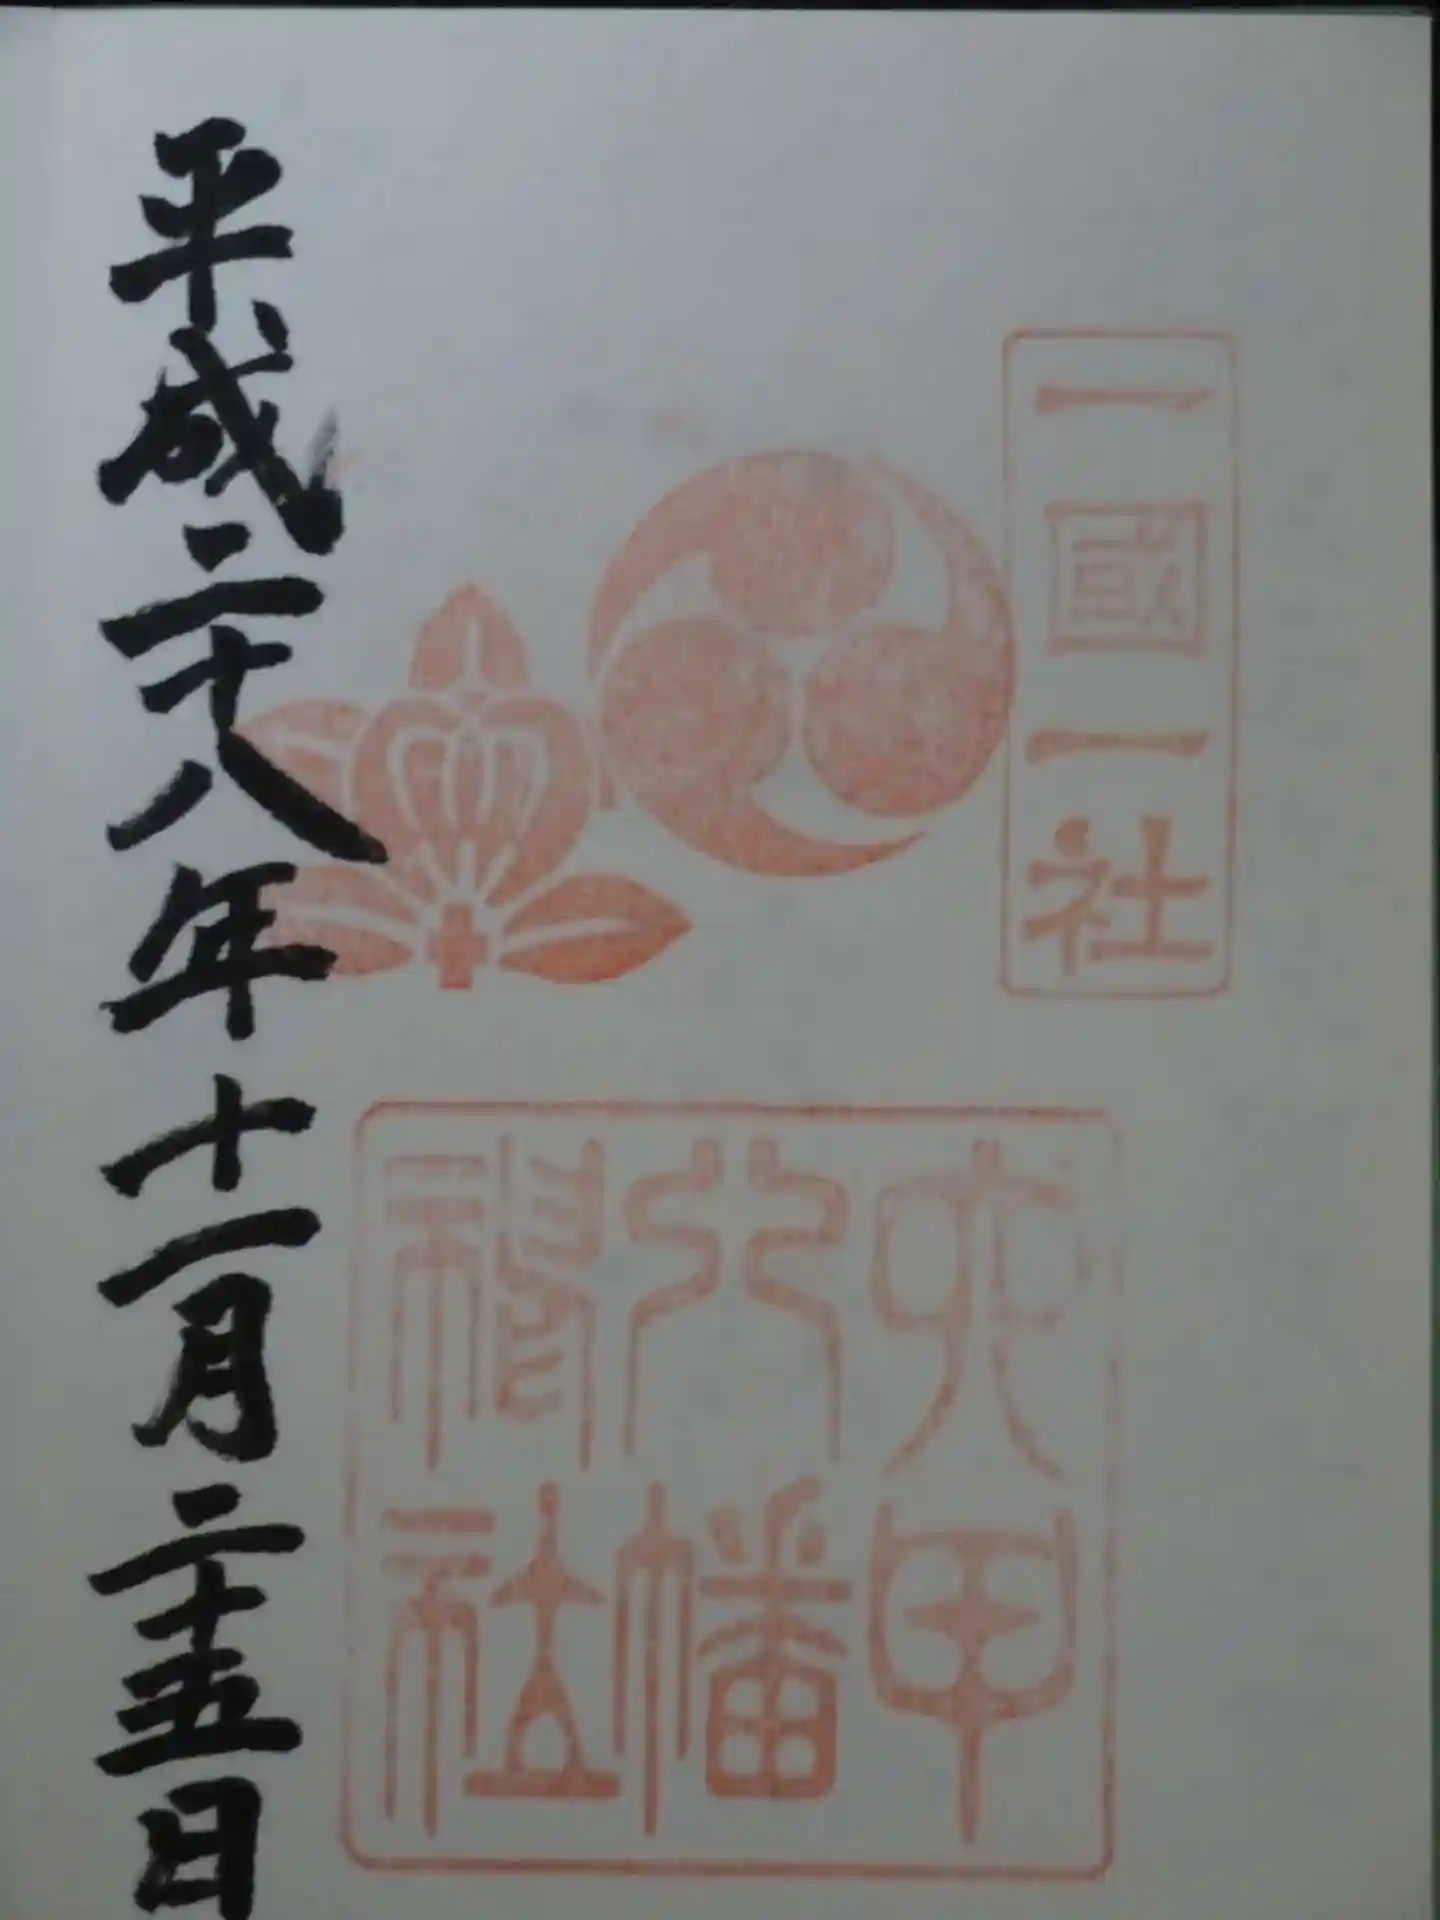 一國一社
六甲
八幡
神社
平成二十八年十一月二十五日